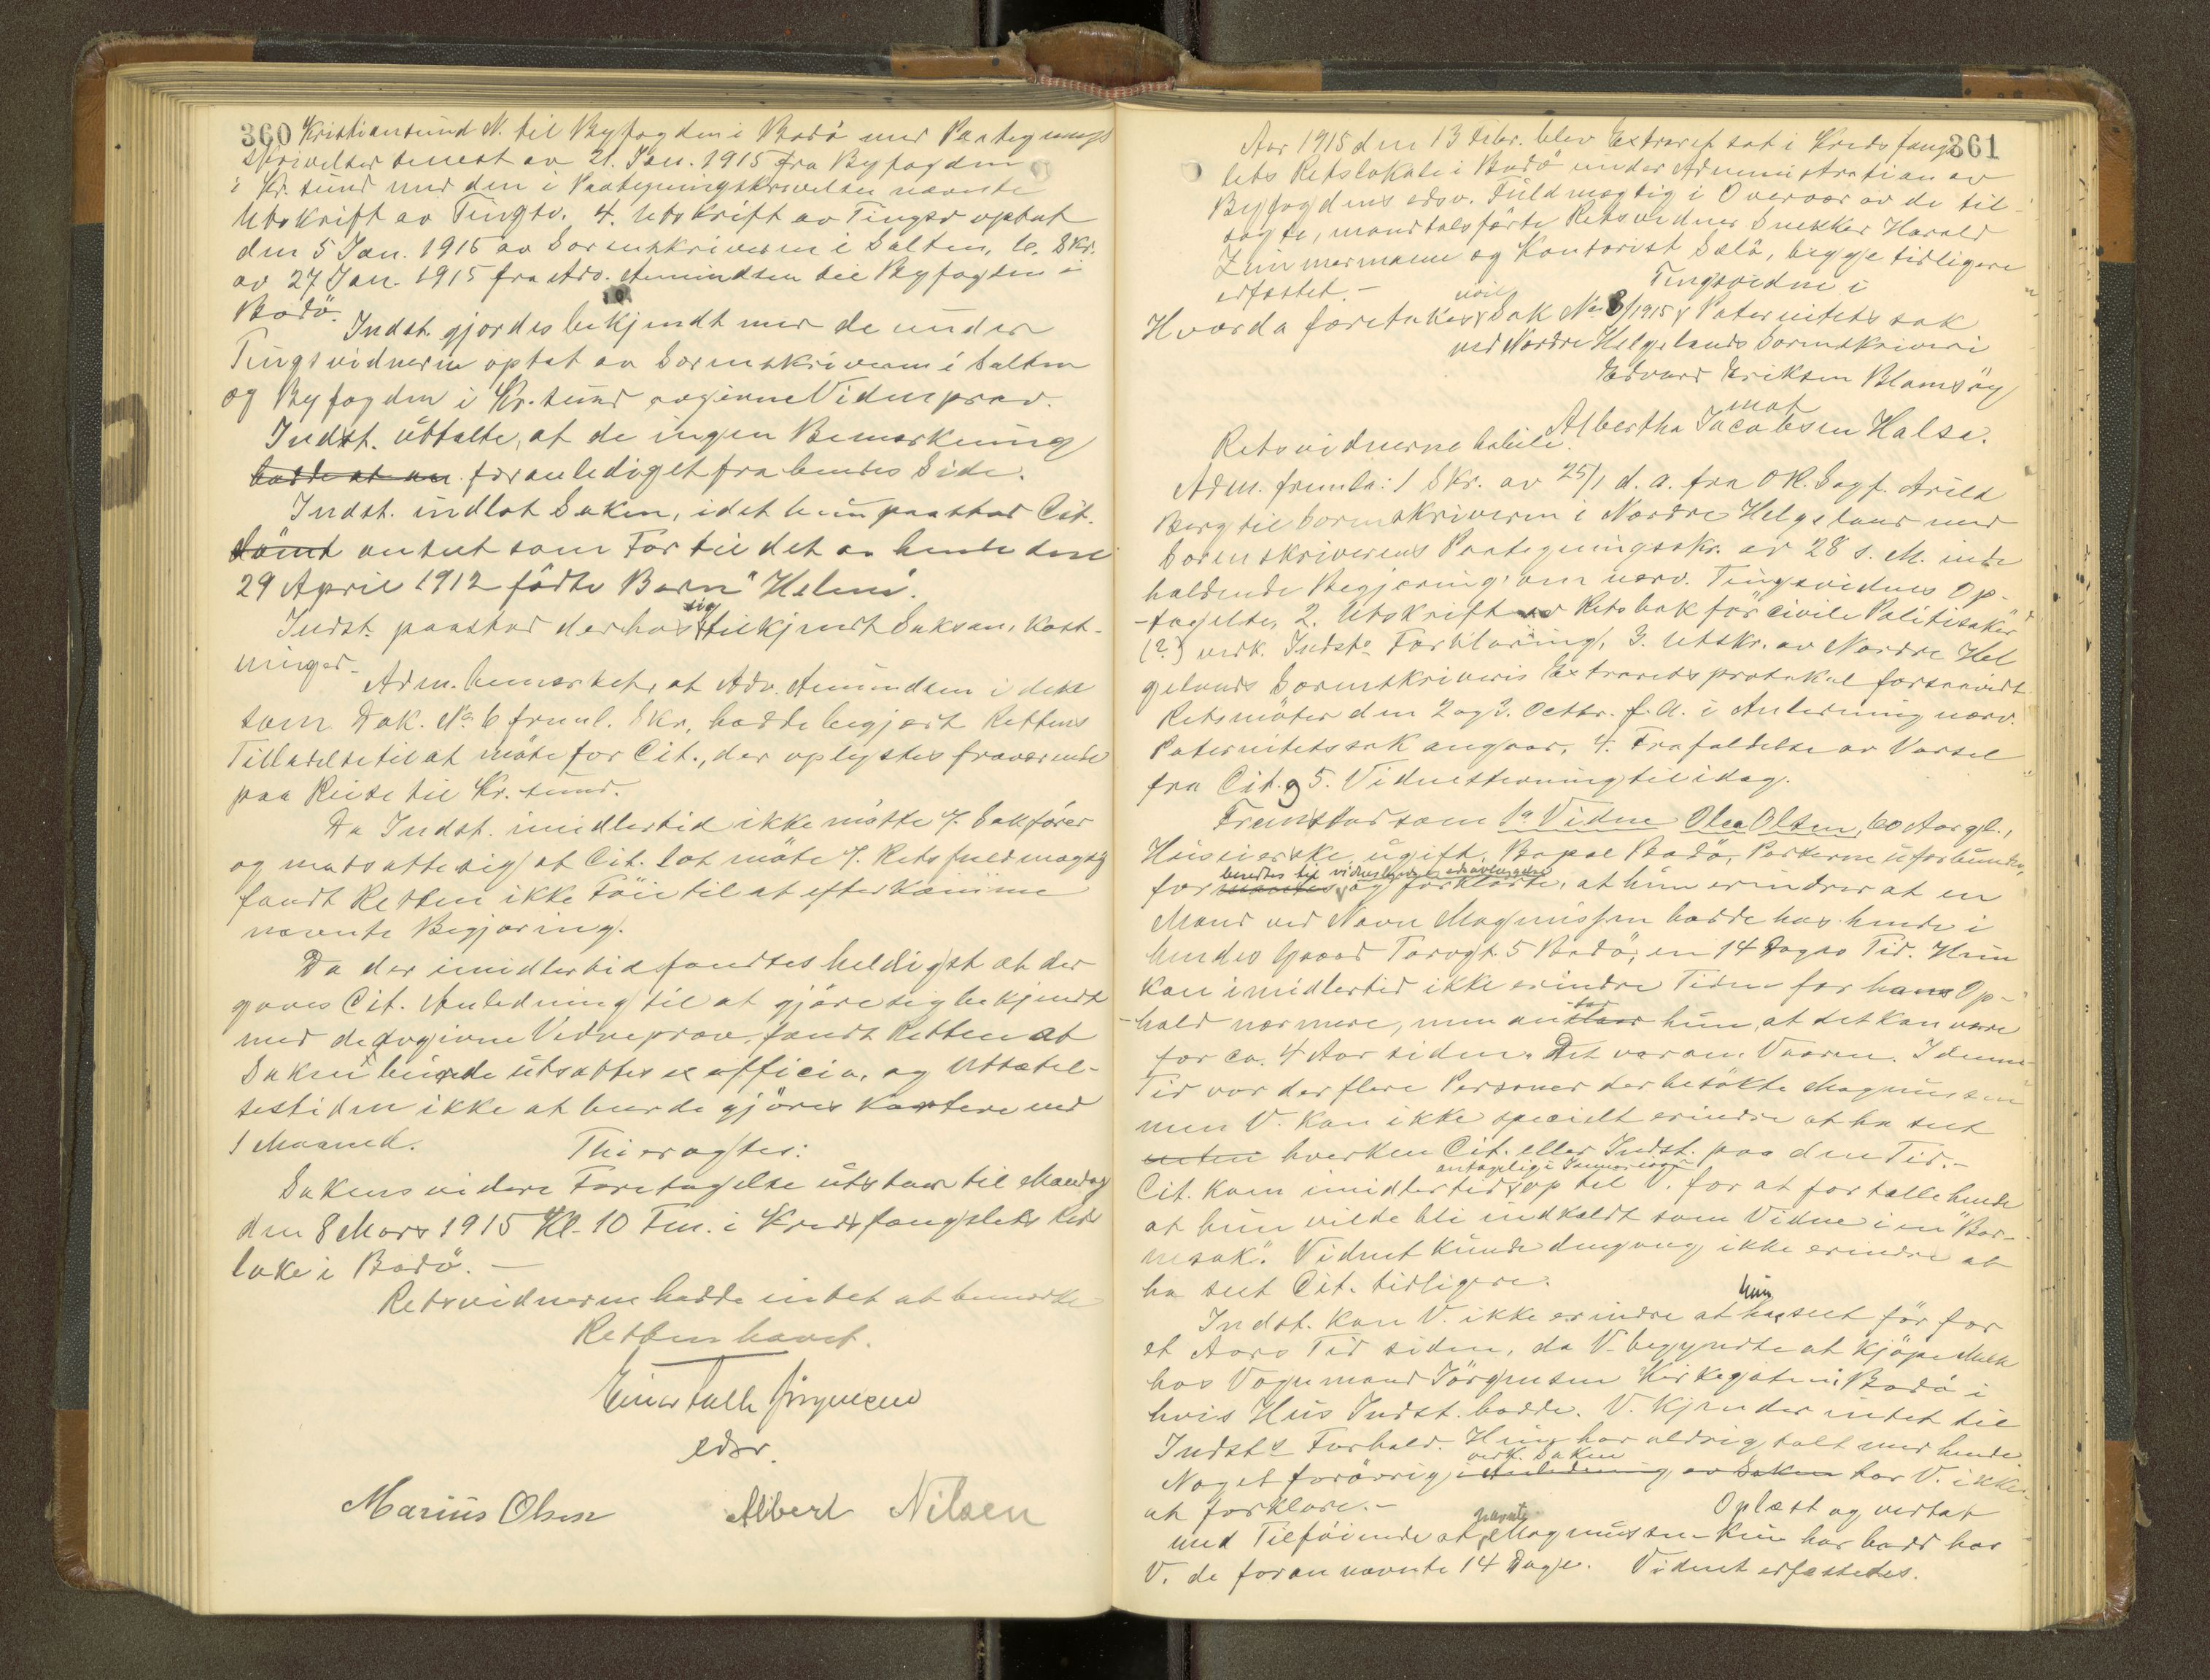 360 Kristiansund N. til Byfogden i Bodö med Paategnings
skrivelser senest av 21. Jan. 1915 fra Byfogden
i Kr.sund med den i Paategningsskrivelsen nævnte
Utskrift av Tingsv. 4. Utskrift av Tingsv optat
den 5 Jan. 1915 av Sorenskriveren i Salten, 6. Skr.
av 27 Jan. 1915 fra Adv. Amundsen til Byfogden i
Bodö.
Indst. gjordes bekjendt med de under
Tingsvidnerne optat av Sorenskriveren i Salten
og Byfogden i Kr.sund avgivne Vidneprov.
Indst. uttalte, at de ingen Bemerkning
hadde at an foranlediget fra hendes Side.
Indst. indlot Saken, idet hun paastod Cit.
dömt anseet som Far til det av hende den
29 April 1912 födte Barn "Helene".
Indst. paastod derhos sig tilkjendt Saksomkost-
ninger.
Adm. bemerket, at Adv. Amundsen i det
som Dok. No 6 freml. Skr. hadde begjært Rettens
Tilladelse til at möte for Cit., der oplystes fraværende
paa Reise til Kr.sund.
Da Indst. imidlertid ikke mötte v. Sakförer
og modsatte sig at Cit. lot möte v. Retsfuldmægtig
fandt Retten ikke Föie til at efterkomme
nævnte Begjæring.
Da det imidlertid fandtes heldigst at der
gaves Cit. Anledning til at gjöre sig bekjendt
med de avgivne Vidneprov, fandt Retten at
Saken burde utsættes ex officio, og Utsættel-
sestiden ikke at burde gjöres kortere end
1 Maaned.
Thi eragtes:
Sakens videre Foretagelse utstaar til Mandag
den 8 Mars 1915 Kl. 10 Fm. i Kredsfængslets Rets
lokale i Bodö. —
Retsvidnerne hadde intet at bemerke
Retten hævet.
Einar Falk Jörgensen
edsv.
Marius Olsen Albert Nilsen
361
Aar 1915 den 13 Febr. blev Extraret sat i Kredsfængs
lets Retslokale i Bodö under Administration av
Byfogdens edsv. Fuldmægtig i Overvær av de til-
sagte, mandtalsförte Retsvidner Snekker Harald
Zimmermann og Kontorist Salö, begge tidligere
edfæstet. —
Hvorda foretokes Tingsvidne i
civil Sak No 8/1915, Paternitetssak
ved Nordre Helgelands Sorenskriveri
Edvard Eriksen Blomsöy
mot
Albertha Jacobsen Halsa.
Retsvidnerne habile.
Adm. fremla: 1 Skr. av 25/1 d. a. fra O.R.Sagf. Arild
Berg til Sorenskriveren i Nordre Helgeland med
Sorenskriverens Paategningsskr. av 28 s. M. inde
holdende Begjæring om nærv. Tingsvidnes Op-
tagelse, 2. Utskrift av Retsbok for "civile Politisaker"
(?) vedk. Indsts Forklaring, 3. Utskr. av Nordre Hel
gelands Sorenskriveris Extraretsprotokol forsaavidt
Retsmöter den 2 og 3. Octbr. f. A. i Anledning nærv.
Paternitetssak angaar, 4. Frafaldelse av Varsel
fra Cit. og 5. Vidnestevning til idag.
Fremstod som 1ste Vidne Olea Olsen, 60 Aar gl.,
Huseierske, ugift, Bopæl Bodö, Parterne uforbunden,
for
beredtes til vidnesbyrds edsavlæggelse
og forklarte, at hun erindrer at en
Mand ved Navn Magnussen bodde hos hende i
hendes Gaard Torvgt. 5 Bodö, en 14 Dages Tid. Hun
kan imidlertid ikke erindre Tiden for hans Op-
hold nærmere, men antar hun, at det kan være
for ca. 4 Aar siden. Det var om Vaaren. I denne
Tid var der flere Personer der besökte Magnussen
men V. kan ikke specielt erindre at ha seet
enten hverken Cit. eller Indst. paa den Tid. —
antagelig i Januar iaar
Cit. kom imidlertid op til V. for at fortælle hende
at hun vilde bli indkaldt som Vidne i en "Bar-
nesak". Vidnet kunde dengang ikke erindre at
ha seet Cit. tidligere.
Indst. kan V. ikke erindre at hun ha seet för for
et Aars Tid siden, da V. begyndte at kjöpe Melk
hos Vognmand Jörgensen Kirkegaten i Bodö i
hvis Hus Indst. bodde. V. kjender intet til
Indsts Forhold. Hun har aldrig talt med hende.
vedk. Saken
Noget forövrig i Anledning av Saken har V. ikke
at forklare. — Oplæst og vedtat
med Tilföiende at nævnte Magnussen kun har bodd hos
V. de foran nævnte 14 Dage. Vidnet edfæstedes.